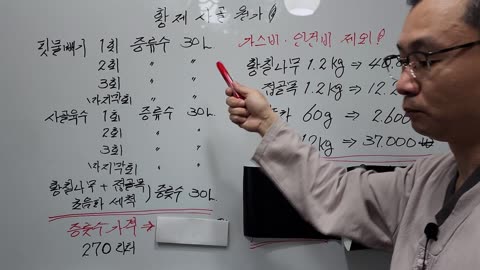 황제 사골 원가
핏물빼기 1회 증류수 30L
2회 〃 〃
3회 〃 〃
마지막회 〃 〃
사골육수 1회 증류수 30L
2회 〃 〃
3회 〃 〃
마지막회 〃 〃
황칠나무 + 접골목
초유파 세척 ) 증류수 30L
증류수 가격 ⇒
270 리터
가스비 · 인건비 제외
황칠나무 1.2kg ⇒
접골목 1.2kg ⇒ 12.
60g ⇒ 2.600
12kg ⇒ 37.000 ₩